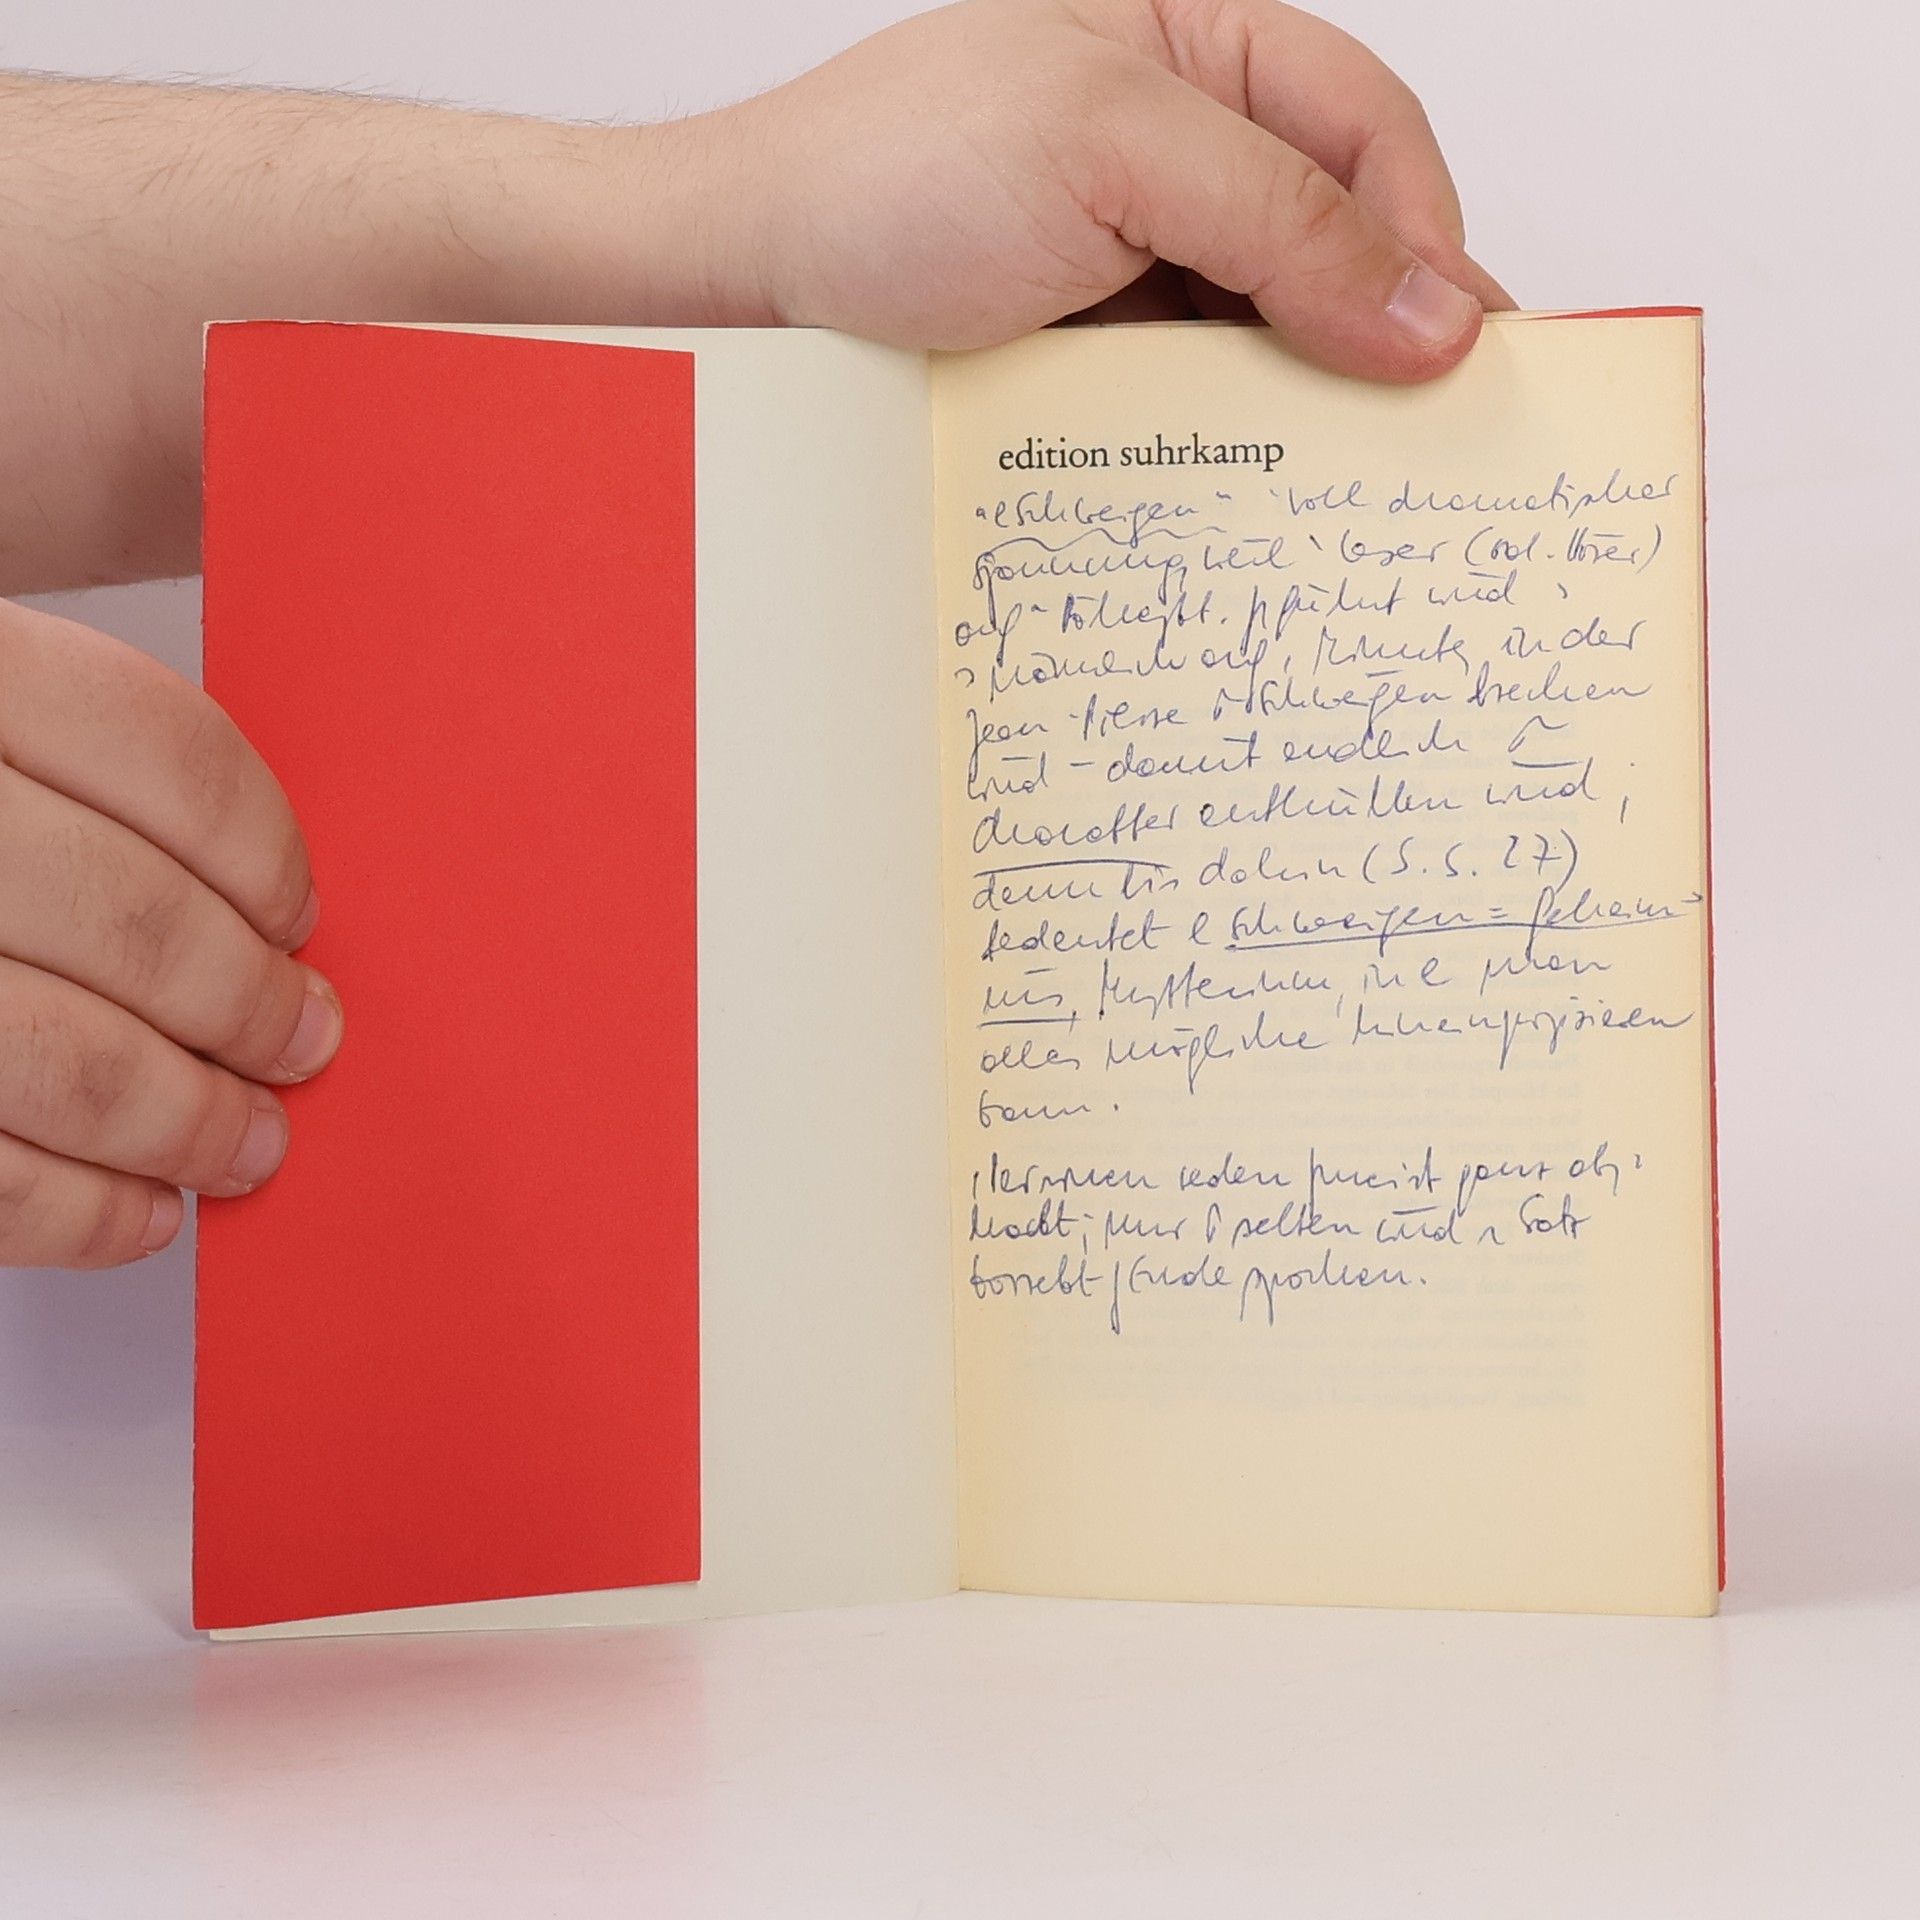 edition suhrkamp
"e Schweigen" voll dramatischer
Spannung, weil Leser (od. Hörer)
auf geführt wird
nämlich auf, Minute, in der
Jean-Pierre Schweigen brechen
wird – damit endlich
Charakter enthüllen wird;
denn bis dahin (s. S. 27)
bedeutet e Schweigen = Geheim-
nis, Mysterium, in e man
alles mögliche hineinprojizieren
kann.
Personen reden meist ganz abge-
hackt; nur selten wird Satz
korrekt Ende gesprochen.